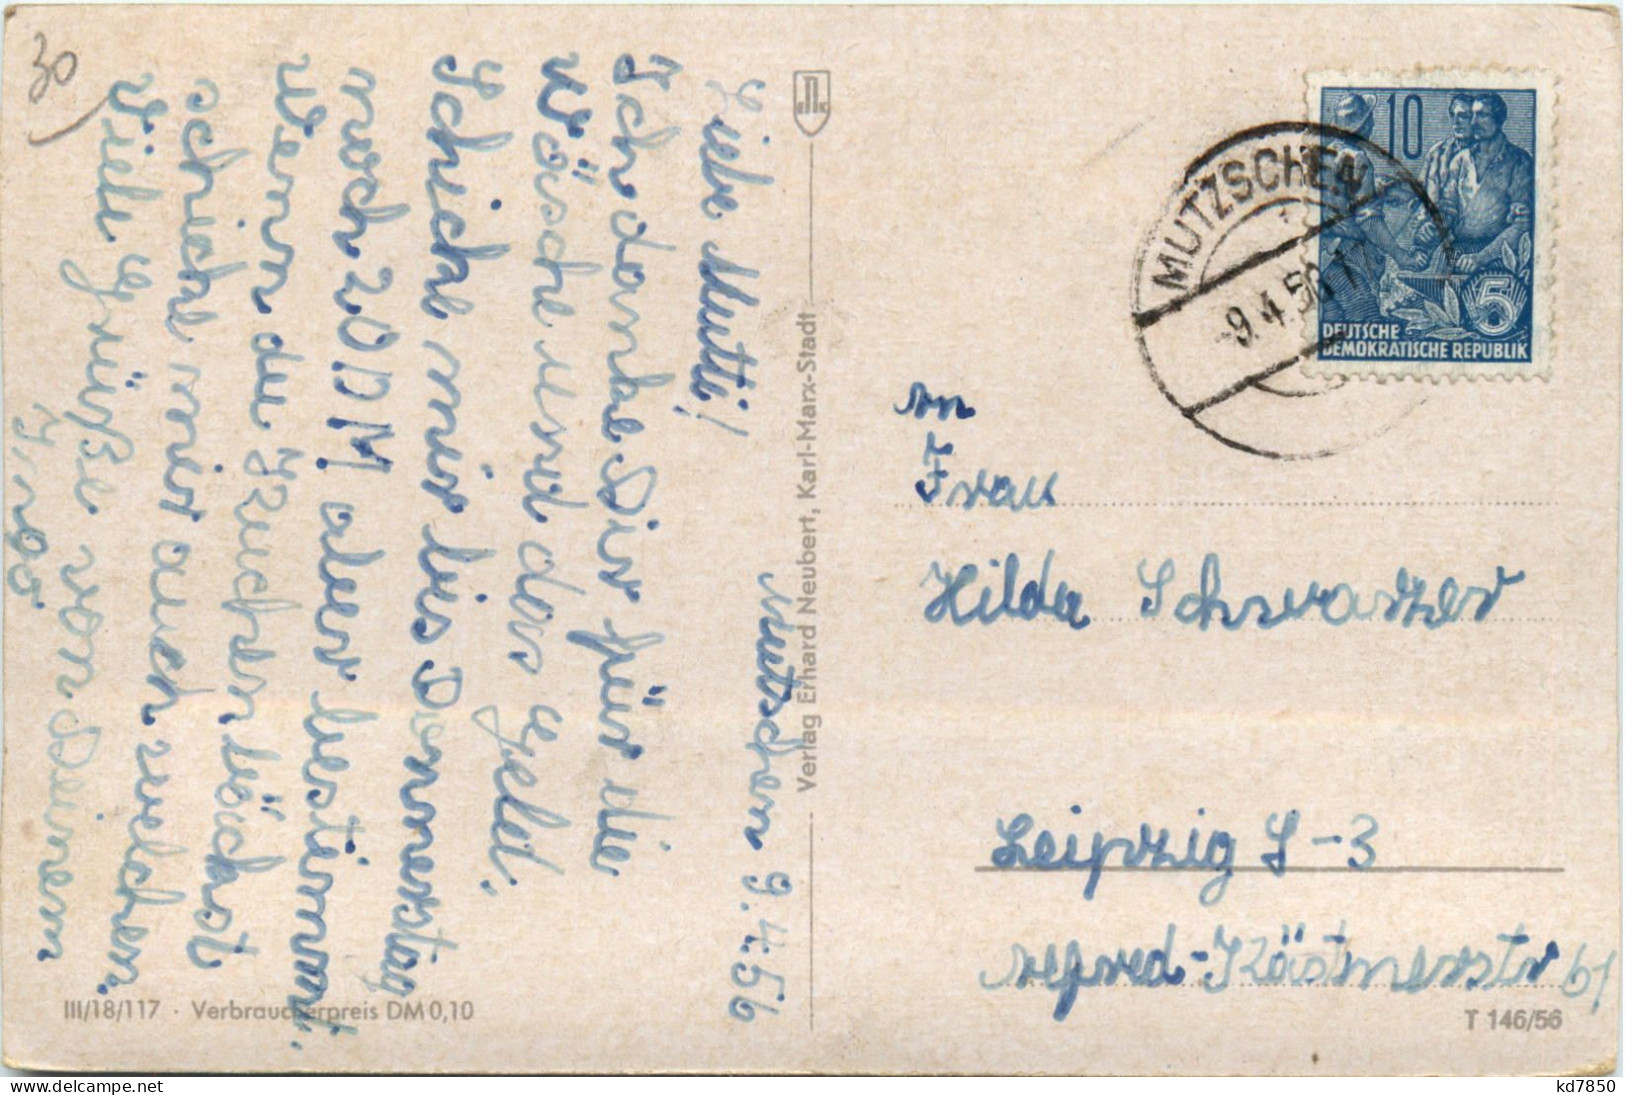 30
Mutschen 9.4.56
Liebe Mutti!
Ich danke Dir für die
Wäsche und das Geld.
Schicke mir bis Donnerstag
noch 20 DM aber bestimmt.
Wenn du Kuchen bäckst
schicke mir auch welchen.
Viele Grüße von Deinem
Ingo
III/18/117 · Verbraucherpreis DM 0,10
Verlag Erhard Neubert, Karl-Marx-Stadt
MUTZSCHEN
-9.4.56
10
5
DEUTSCHE
DEMOKRATISCHE REPUBLIK
an
Frau
Hilda Schwarzer
Leipzig S-3
Kästnerstr 61
T 146/56
kd7850